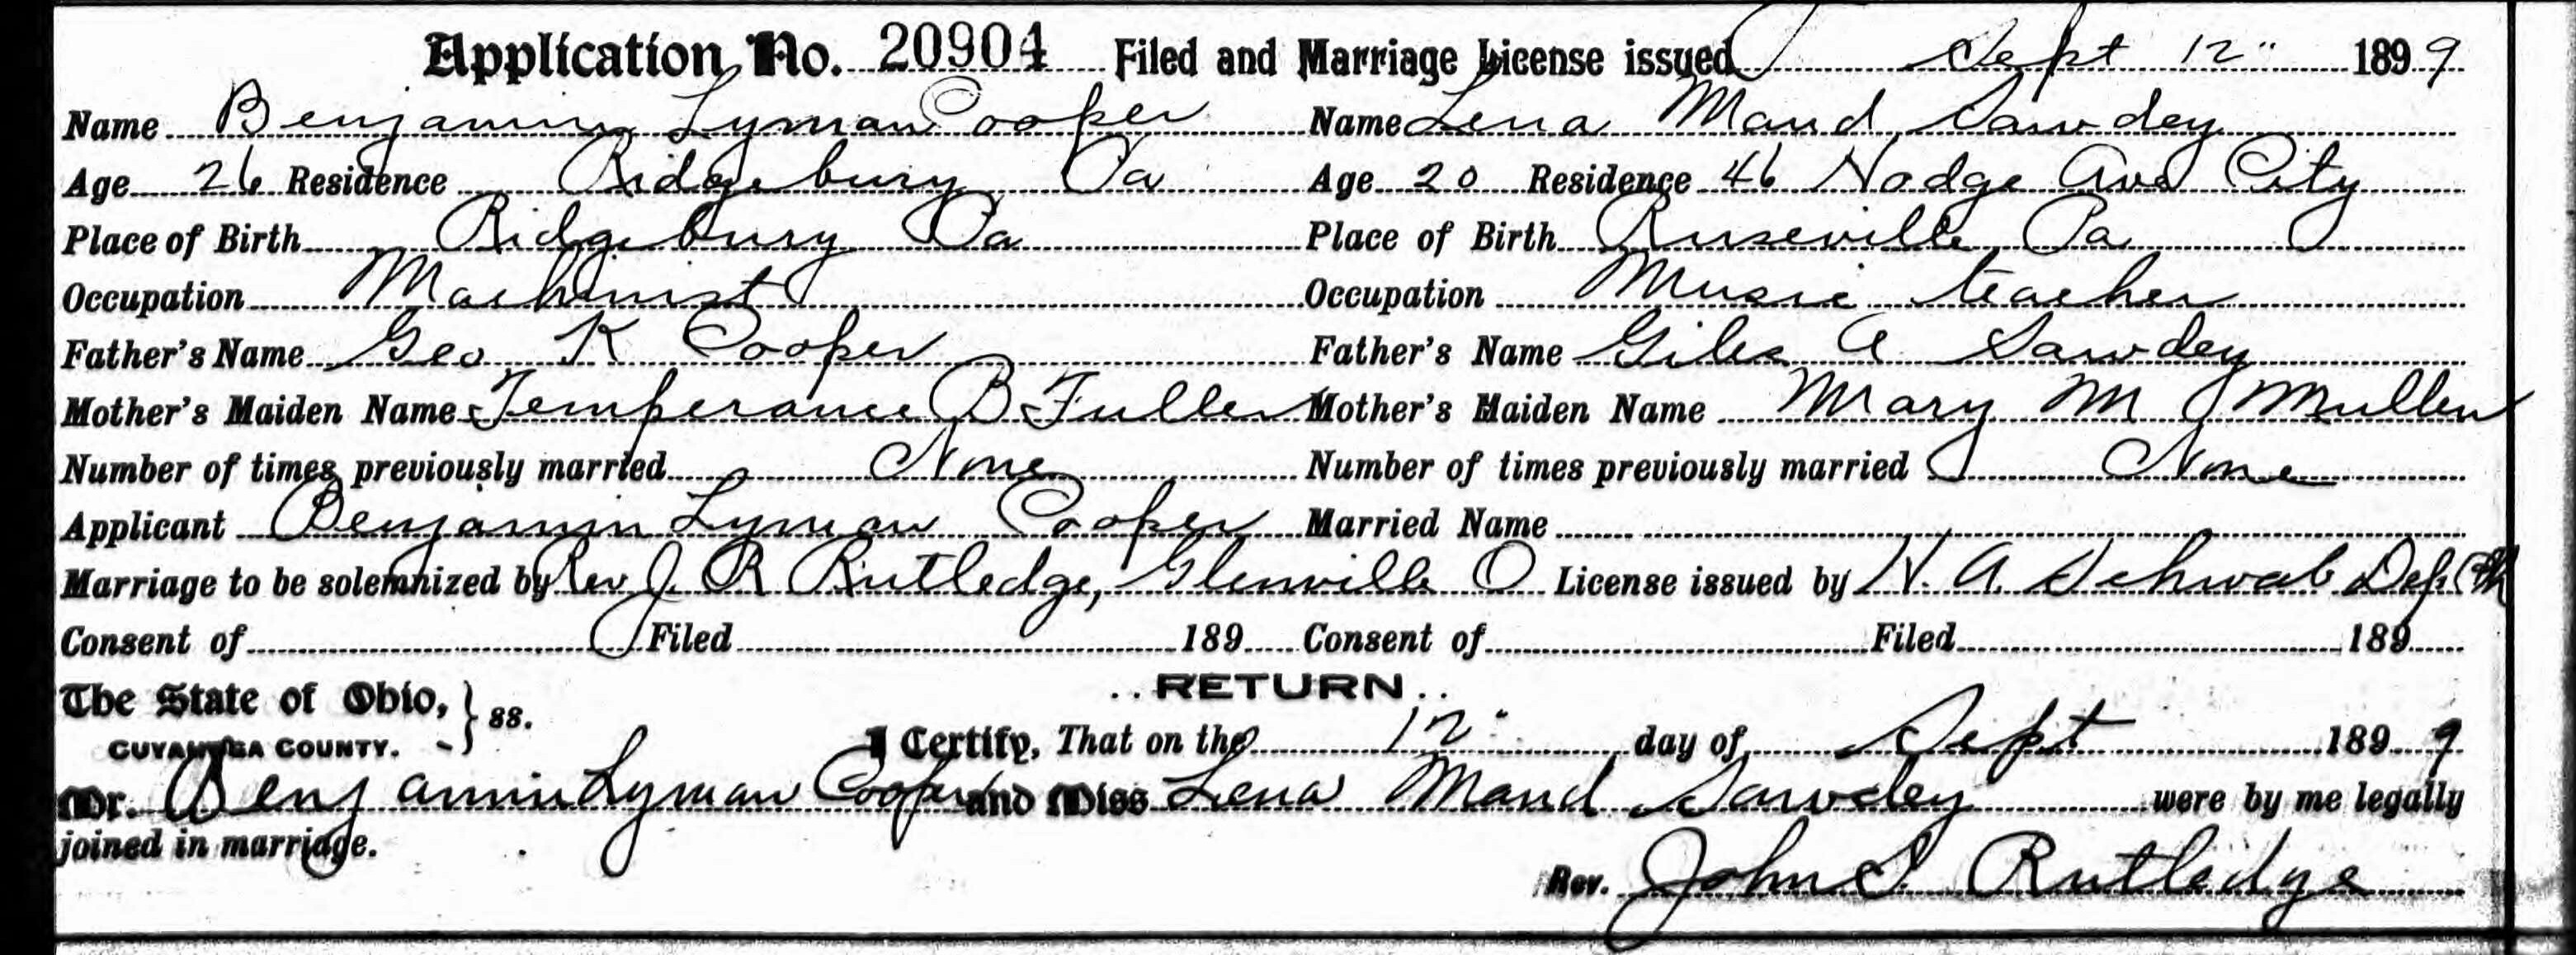 Application No. 20904 Filed and Marriage License issued Sept 12" 1899
Name Benjamin Lyman Cooper Name Lena Maud Sawdey
Age 26 Residence Ridgebury Pa Age 20 Residence 46 Hodge Ave City
Place of Birth Ridgebury Pa Place of Birth Ruseville Pa
Occupation Machinist Occupation Music teacher
Father's Name Geo K Cooper Father's Name Giles A Sawdey
Mother's Maiden Name Temperance B Fuller Mother's Maiden Name Mary M Mullen
Number of times previously married None Number of times previously married None
Applicant Benjamin Lyman Cooper Married Name
Marriage to be solemnized by Rev J. R Rutledge, Glenville O License issued by H. A. Schwab Dep. Clk
Consent of Filed 189 Consent of Filed 189
The State of Ohio, } ss. ..RETURN..
CUYAHOGA COUNTY. I Certify, That on the 12" day of Sept 1899
Mr. Benjamin Lyman Cooper and Miss Lena Maud Sawdey were by me legally
joined in marriage.
Rev. John S. Rutledge